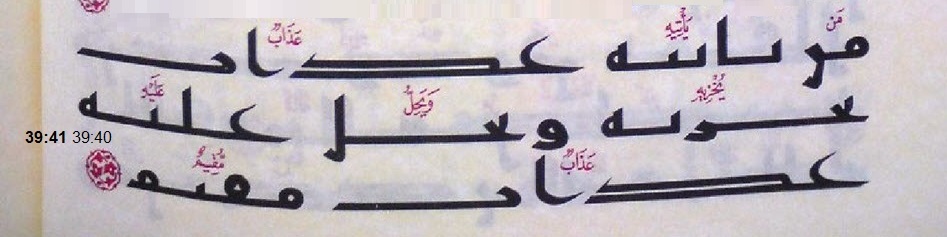 من يأتيه عذاب
مَن يَأْتِيهِ عَذَابٌ
يخزيه ويحل عليه
يُخْزِيهِ وَيَحِلُّ عَلَيْهِ
39:41 39:40
عذاب مقيم
عَذَابٌ مُّقِيمٌ